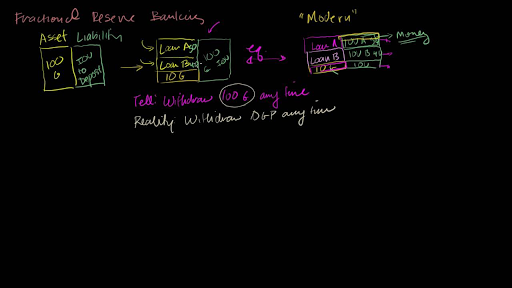 Fractional Reserve Banking
"Modern"
Asset Liability
100 G
IOU to Deposit
Loan A
Loan B
10 G
100 G IOU
Loan A
Loan B
10 G
IOU A
IOU B
IOU
Money
Tell: Withdraw 100 G any time
Reality Withdraw any time